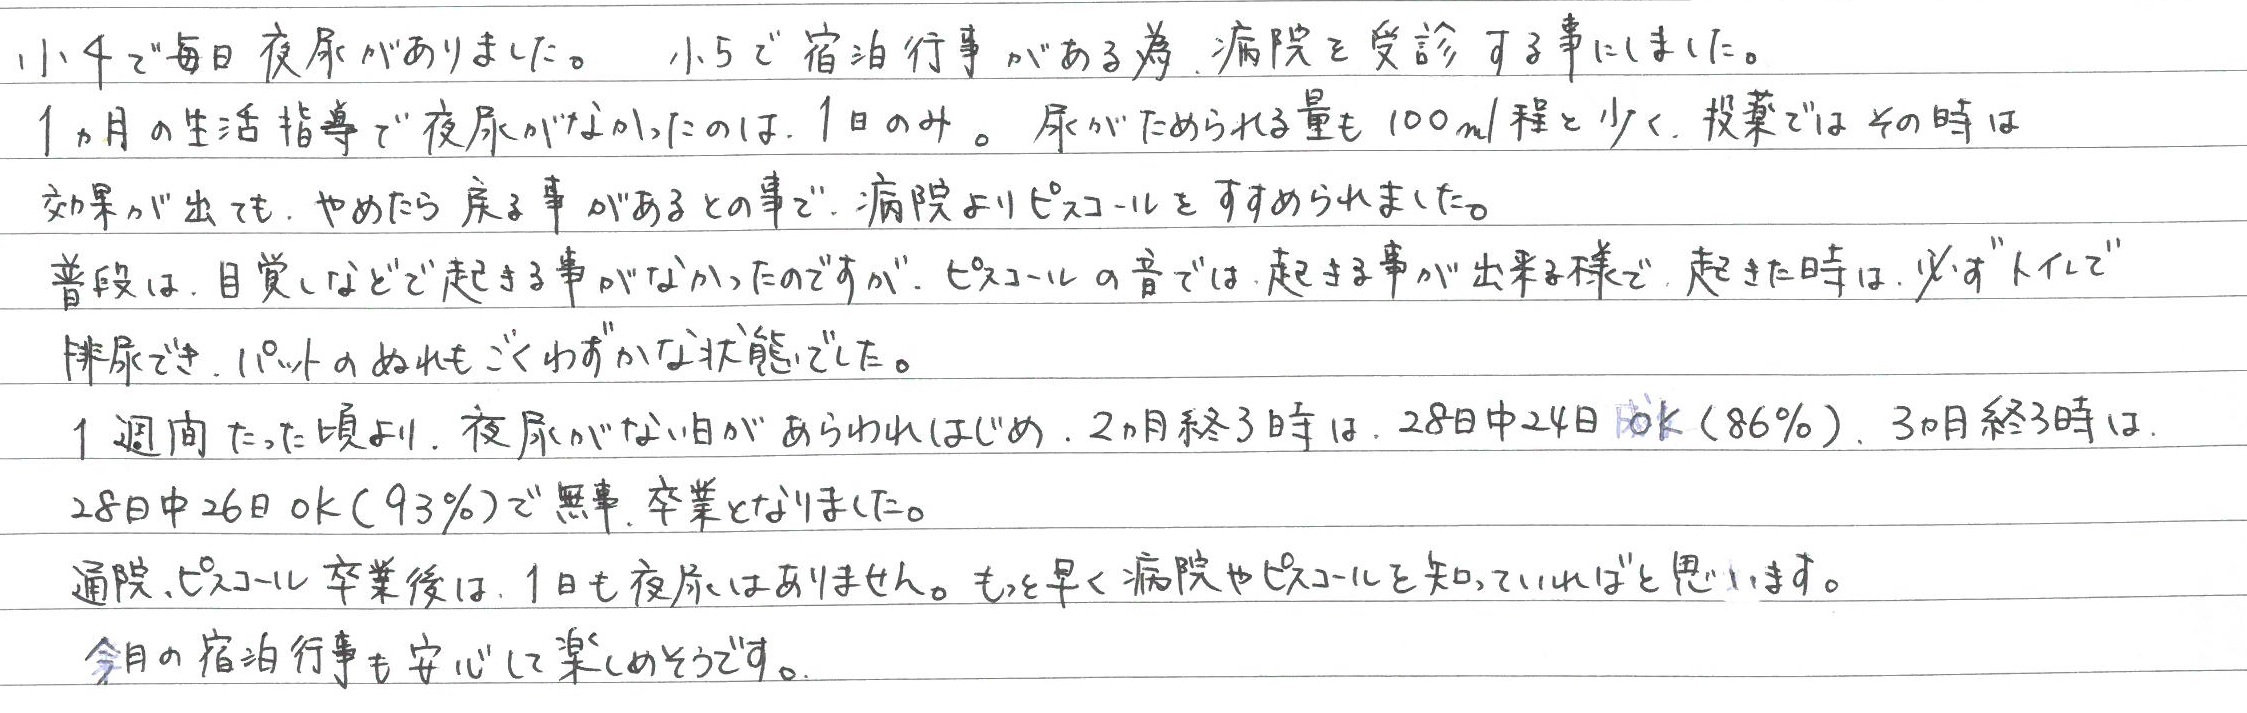 小4で毎日夜尿がありました。　小5で宿泊行事がある為、病院を受診する事にしました。
1ヵ月の生活指導で夜尿がなかったのは、1日のみ。尿がためられる量も100ml程と少く、投薬ではその時は
効果が出ても、やめたら戻る事があるとの事で、病院よりピスコールをすすめられました。
普段は、目覚しなどで起きる事がなかったのですが、ピスコールの音では、起きる事が出来る様で、起きた時は、必ずトイレで
排尿でき、パットのぬれもごくわずかな状態でした。
1週間たった頃より、夜尿がない日があらわれはじめ、2ヵ月終る時は、28日中24日OK(86%)、3ヵ月終る時は、
28日中26日OK(93%)で無事、卒業となりました。
通院、ピスコール卒業後は、1日も夜尿はありません。もっと早く病院やピスコールを知っていればと思います。
今月の宿泊行事も安心して楽しめそうです。